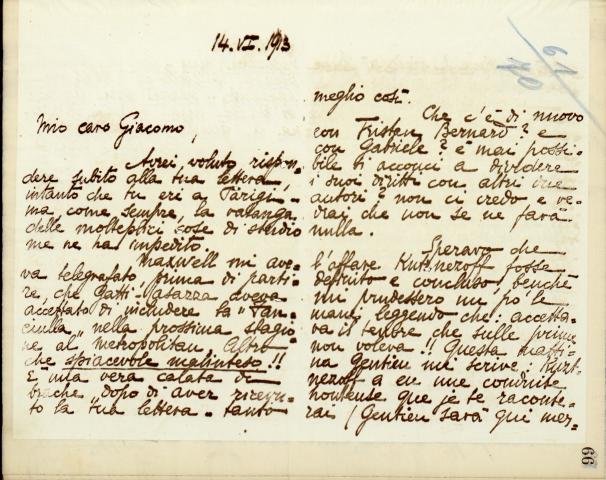 14.VI.1913
Mio caro Giacomo,
Avrei voluto rispon=
dere subito alla tua lettera,
intanto che tu eri a Parigi=
ma, come sempre, la valanga
delle molteplici cose di studio
me ne ha impedito.
Maxwell mi ave=
va telegrafato prima di parti=
re, che Gatti-Casazza aveva
accettato di includere la "Fan=
ciulla" nella prossima stagio=
ne al Metropolitan. Altro
che spiacevole malinteso!!
E' una vera calata di
brache "dopo di aver ricevu=
to la tua lettera. tanto
meglio così.
Che c'è di nuovo
con Tristan Bernard? e
con Gabriele? è mai possi=
bile ti acconci a dividere
i tuoi diritti con altri due
autori? non ci credo e ve=
drai, che non se ne farà
nulla.
Speravo che
l'affare Kutsnezoff fosse
definito e concluso, benchè
mi prudessero un po' le
mani leggendo che: accetta=
va il tenore che sulle prime
non voleva!! Questa matti=
na Gentien mi scrive: Kurt=
nezoff a eu une conduite
honteuse que je te raconte=
rai (Gentien sarà qui mer=
61
70
99